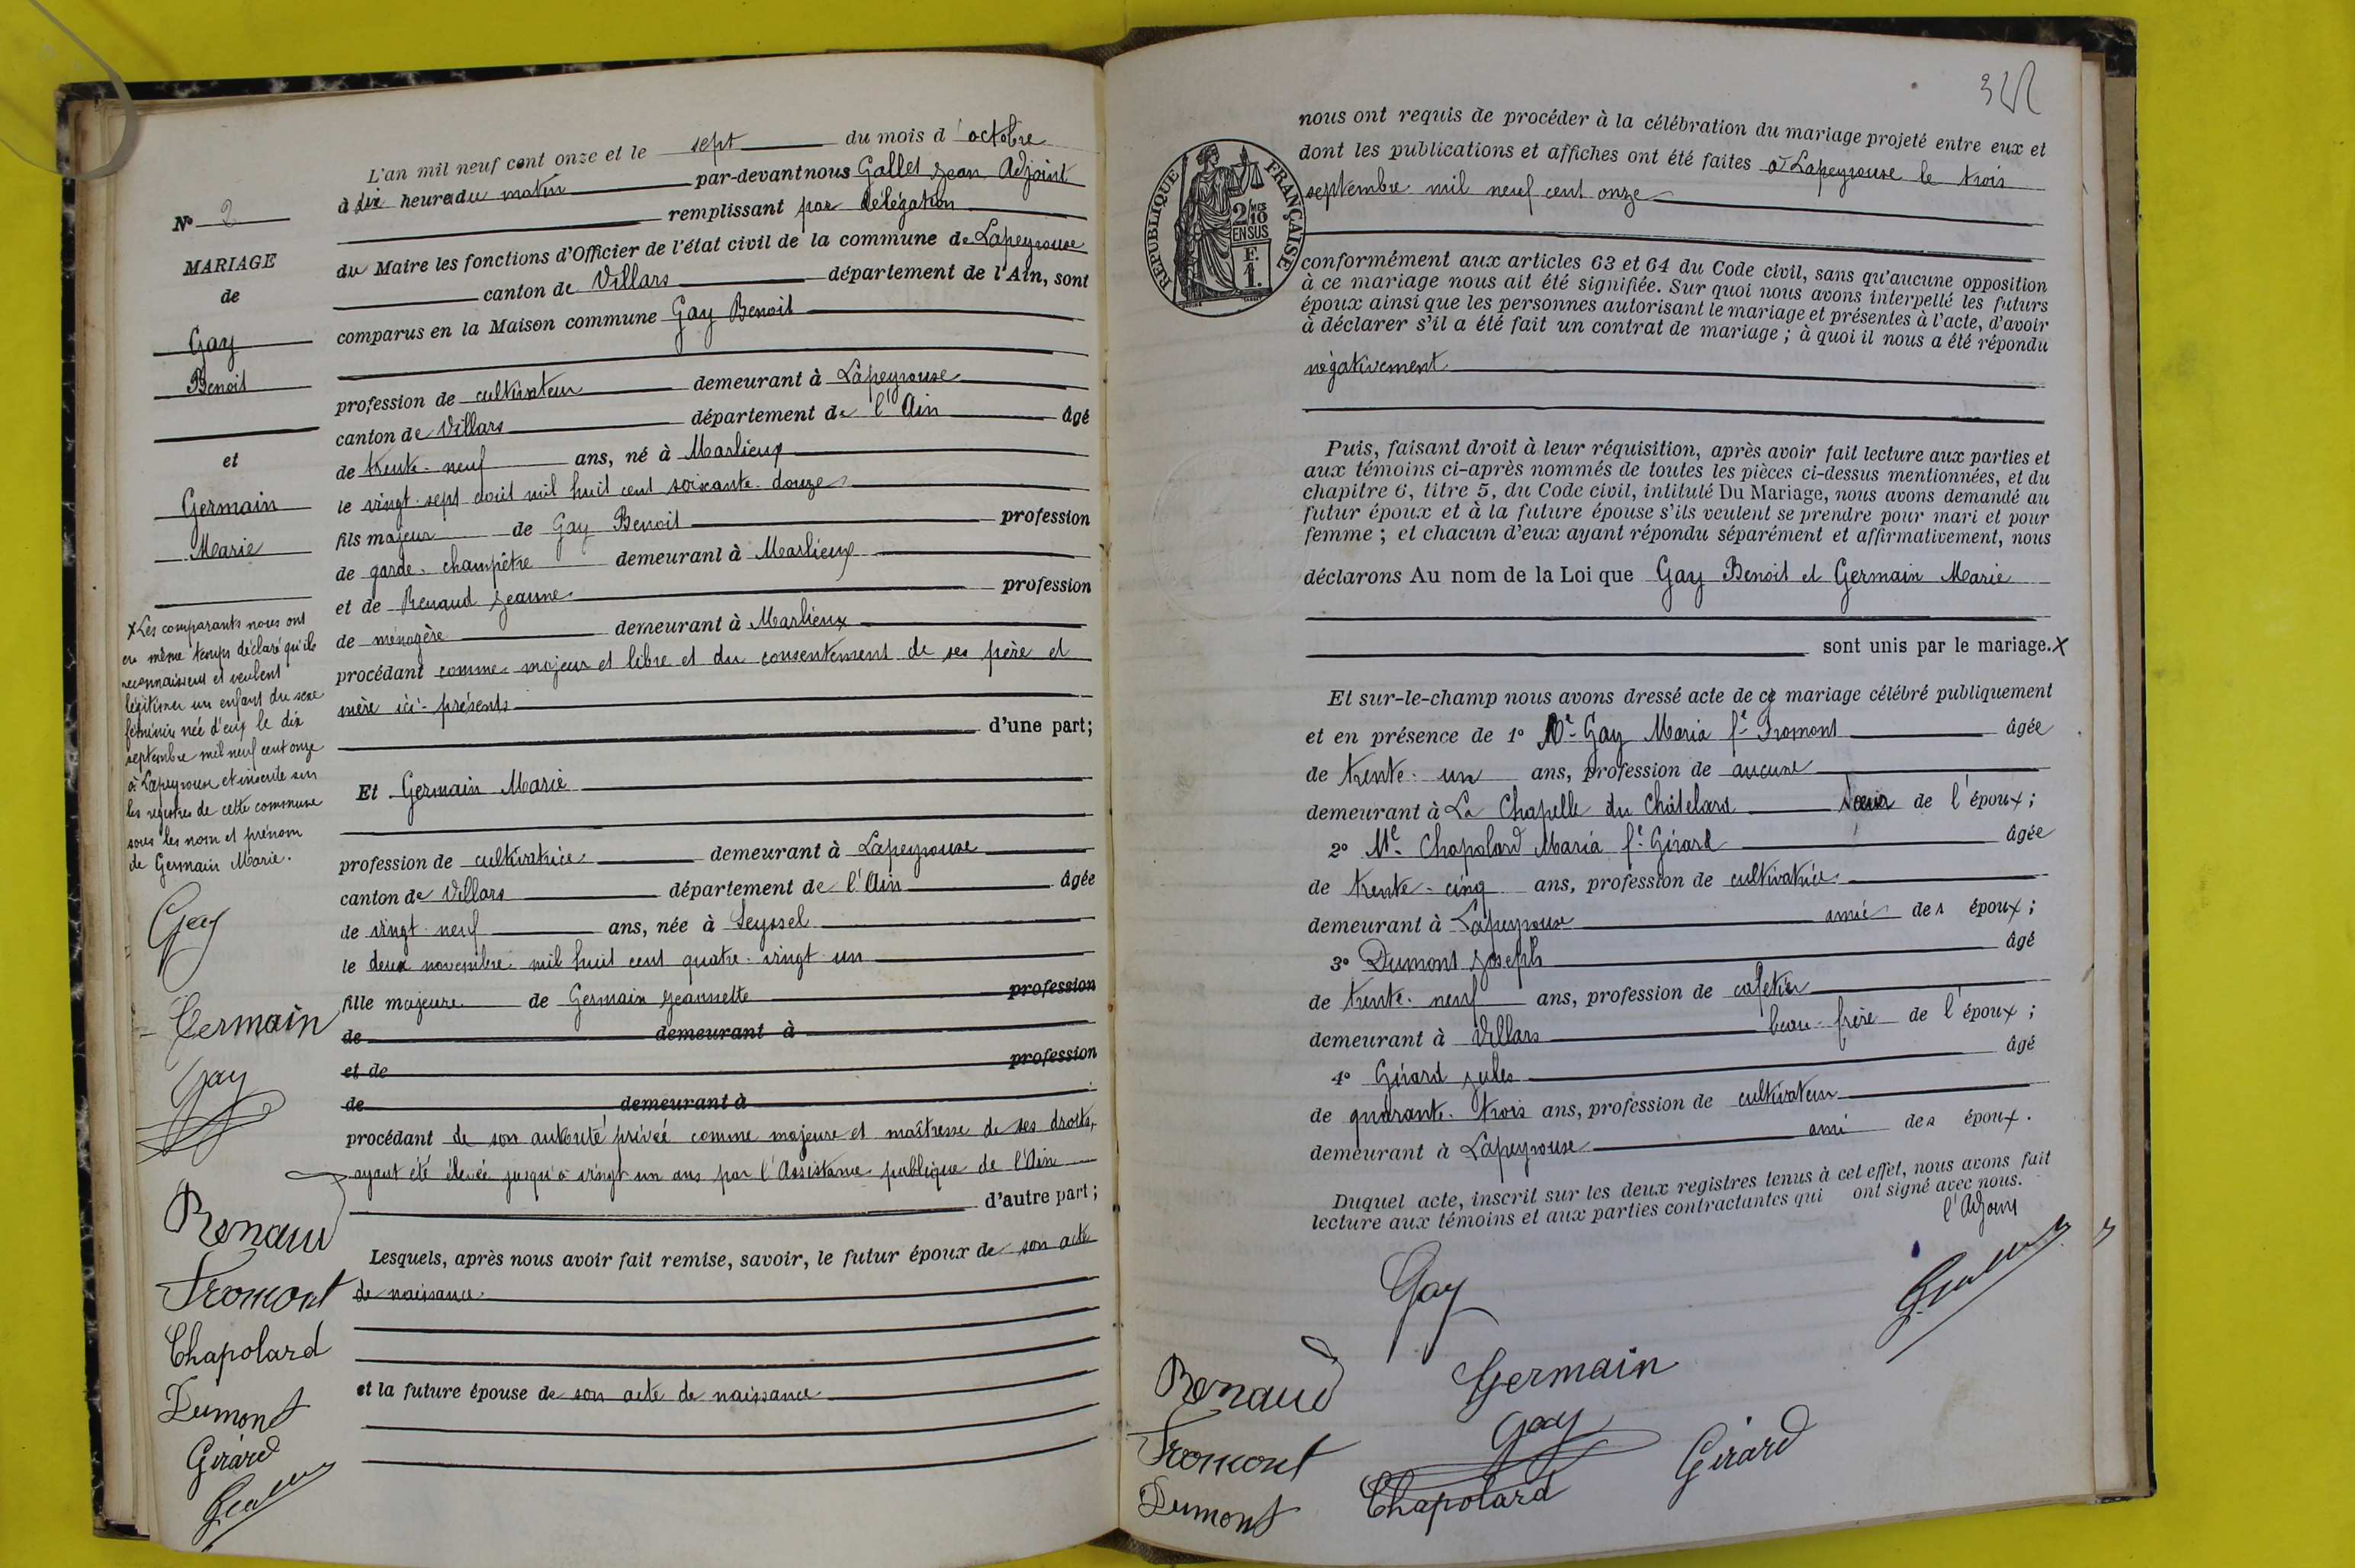 N° 2
MARIAGE
de
Gay
Benoit
et
Germain
Marie
X Les comparants nous ont
en même temps déclaré qu'ils
reconnaissent et veulent
légitimer un enfant du sexe
féminin née d'eux le dix
septembre mil neuf cent onze
à Lapeyrouse et inscrite sur
les registres de cette commune
sous les nom et prénom
de Germain Marie.
Gay
Germain
Gay
Renaud
Fromont
Chapolard
Dumont
Girard
L'an mil neuf cent onze et le sept du mois d'octobre
à dix heures du matin par-devant nous Gallet Jean Adjoint
remplissant par délégation
du Maire les fonctions d'Officier de l'état civil de la commune de Lapeyrouse
canton de Villars département de l'Ain, sont
comparus en la Maison commune Gay Benoit
profession de cultivateur demeurant à Lapeyrouse
canton de Villars département de l'Ain âgé
de trente-neuf ans, né à Marlieux
le vingt-sept août mil huit cent soixante-douze
fils majeur de Gay Benoit profession
de garde-champêtre demeurant à Marlieux
et de Renaud Jeanne profession
de ménagère demeurant à Marlieux
procédant comme majeur et libre et du consentement de ses père et
mère ici-présents
d'une part;
Et Germain Marie
profession de cultivatrice demeurant à Lapeyrouse
canton de Villars département de l'Ain âgée
de vingt-neuf ans, née à Seyssel
le deux novembre mil huit cent quatre-vingt-un
fille majeure de Germain Jeannette profession
de demeurant à
et de profession
de demeurant à
procédant de son autorité privée comme majeure et maîtresse de ses droits,
ayant été élevée jusqu'à vingt-un ans par l'Assistance publique de l'Ain
d'autre part;
Lesquels, après nous avoir fait remise, savoir, le futur époux de son acte
de naissance
et la future épouse de son acte de naissance
RÉPUBLIQUE FRANÇAISE
2/MES
10
EN SUS
F.
1.
nous ont requis de procéder à la célébration du mariage projeté entre eux et
dont les publications et affiches ont été faites à Lapeyrouse le trois
septembre mil neuf cent onze
conformément aux articles 63 et 64 du Code civil, sans qu'aucune opposition
à ce mariage nous ait été signifiée. Sur quoi nous avons interpellé les futurs
époux ainsi que les personnes autorisant le mariage et présentes à l'acte, d'avoir
à déclarer s'il a été fait un contrat de mariage; à quoi il nous a été répondu
négativement
Puis, faisant droit à leur réquisition, après avoir fait lecture aux parties et
aux témoins ci-après nommés de toutes les pièces ci-dessus mentionnées, et du
chapitre 6, titre 5, du Code civil, intitulé Du Mariage, nous avons demandé au
futur époux et à la future épouse s'ils veulent se prendre pour mari et pour
femme; et chacun d'eux ayant répondu séparément et affirmativement, nous
déclarons Au nom de la Loi que Gay Benoit et Germain Marie
sont unis par le mariage. X
Et sur-le-champ nous avons dressé acte de ce mariage célébré publiquement
et en présence de 1° Gay Maria fe Fromont âgée
de trente-un ans, profession de aucune
demeurant à La Chapelle du Châtelard soeur de l'époux;
2° Me Chapolard Maria fe Girard âgée
de trente-cinq ans, profession de cultivatrice
demeurant à Lapeyrouse amie des époux;
3° Dumont Joseph âgé
de trente-neuf ans, profession de cafetier
demeurant à Villars beau-frère de l'époux;
4° Girard Jules âgé
de quarante-trois ans, profession de cultivateur
demeurant à Lapeyrouse ami des époux.
Duquel acte, inscrit sur les deux registres tenus à cet effet, nous avons fait
lecture aux témoins et aux parties contractantes qui ont signé avec nous.
l'Adjoint
Gay
Renaud
Germain
Gay
Fromont
Girard
Chapolard
Dumont